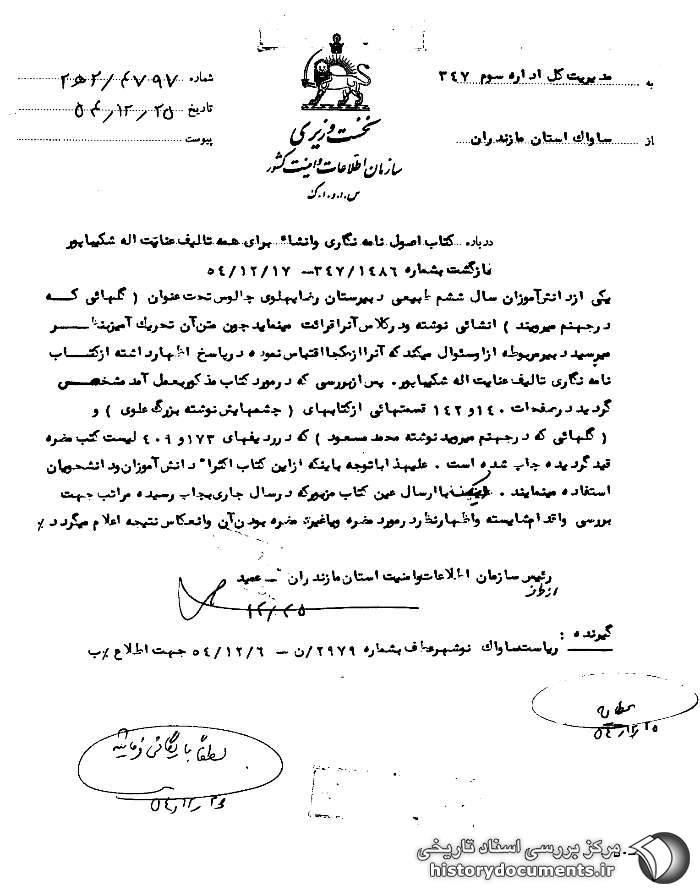 به مدیریت کل اداره سوم ۳۴۷
از ساواک استان مازندران
نخست وزیری
سازمان اطلاعات و امنیت کشور
س.ا.و.ا.ک
شماره ۲ه۲/۴۷۹۷
تاریخ ۵۴/۱۲/۲۵
پیوست
درباره کتاب اصول نامه نگاری وانشاء برای همه تالیف عنایت اله شکیباپور
بازگشت بشماره ۳۴۷/۱۴۸۶ – ۵۴/۱۲/۱۷
یکی ازدانش‌آموزان سال ششم طبیعی دبیرستان رضاپهلوی چالوس تحت عنوان ( گلهائی که
درجهنم میرویند ) انشائی نوشته ودرکلاس آنرا قرائت مینماید چون متن آن تحریک آمیزبنظر
میرسید دبیرمربوطه ازاوسئوال میکند که آنرا ازکجا اقتباس نموده درپاسخ اظهارداشته ازکتاب
نامه نگاری تالیف عنایت اله شکیباپور. پس ازبررسی که درمورد کتاب مذکوربعمل آمد مشخص
گردید درصفحات ۱۴۰و۱۴۲ قسمتهائی ازکتابهای ( چشمهایش نوشته بزرگ علوی ) و
( گلهائی که درجهنم میروید نوشته محمد مسعود ) که درردیفهای ۱۷۳و۴۰۹ لیست کتب مضره
قید گردیده چاپ شده است . علیهذا باتوجه باینکه ازاین کتاب اکثراً دانش‌آموزان ودانشجویان
استفاده مینمایند . اینک باارسال عین کتاب مزبورکه درسال جاری بچاپ رسیده مراتب جهت
بررسی واقدام شایسته واظهارنظر درمورد مضره ویاغیر مضره بودن آن وانعکاس نتیجه اعلام میگردد ٪
رئیس سازمان اطلاعات وامنیت استان مازندران – عمید
از طرف
۱۲/۲۵
گیرنده :
ریاست ساواک نوشهر عطف بشماره ۲۹۷۹/ن – ۵۴/۱۲/۶ جهت اطلاع ٪ب
۵۴/۱۲/۲۵
لطفاً بایگانی فرمائید
۵۴/۱۲/۲۶
مرکز بررسی اسناد تاریخی
historydocuments.ir